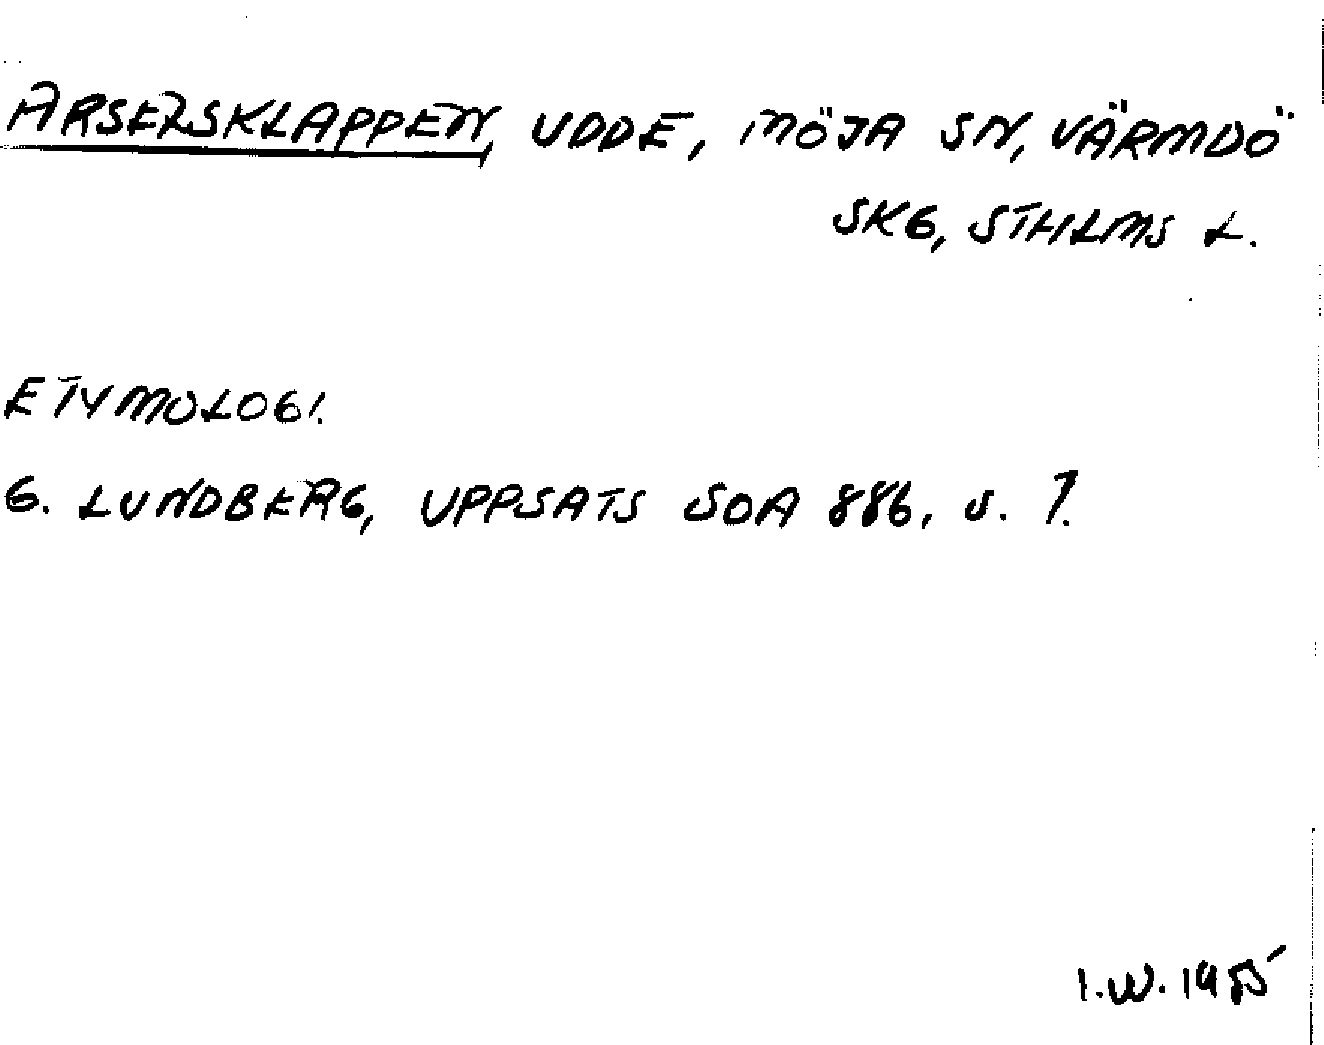 ARSERSKLAPPEN, UDDE, MÖJA SN, VÄRMDÖ
SKG, STHLMS L.
ETYMOLOGI.
G. LUNDBERG, UPPSATS SOA 886, s. 7.
I.W. 1955